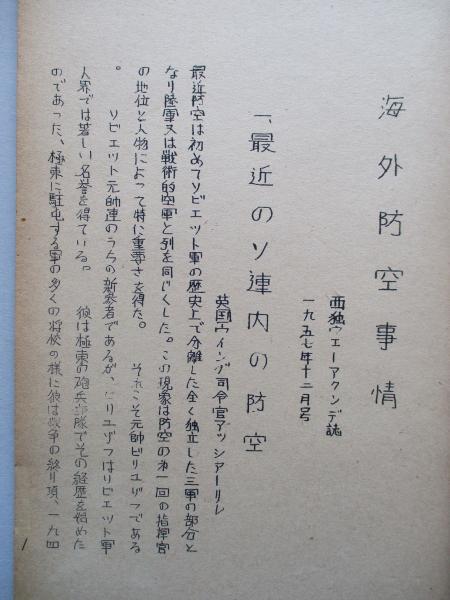 海外防空事情
西独ウエーアクンデ誌
一九五七年十二月号
「、最近のソ連内の防空
英国ウイング司令官アッシアーリレ
最近防空は初めてソビエット軍の歴史上で分離した全く独立した三軍の部分と
なり陸軍又は戦術的空軍と列を同じくした。この現象は防空の第一回の指揮官
の地位と人物によって特に重要さを得た。 それこそ元帥ビリユゾフである
。
ソビエット元帥連のうちの新参者であるが、ビリユゾフはソビエット軍
人界では著しい名誉を得ている。 彼は極東の砲兵部隊でその経歴を始めた
のであった、極東に駐屯する軍の多くの将校の様に彼は戦争の終り頃、一九四
1